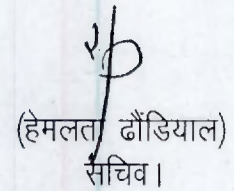 (हेमलता ढौंडियाल)
सचिव।